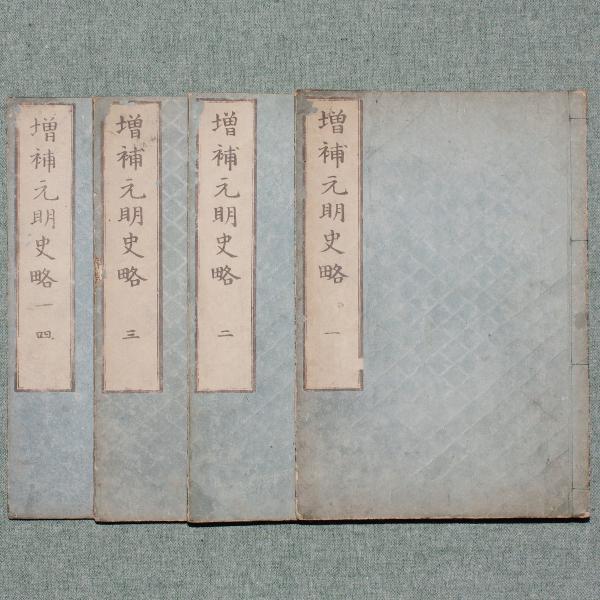 増補元明史略 一
増補元明史略 二
増補元明史略 三
増補元明史略 一 四